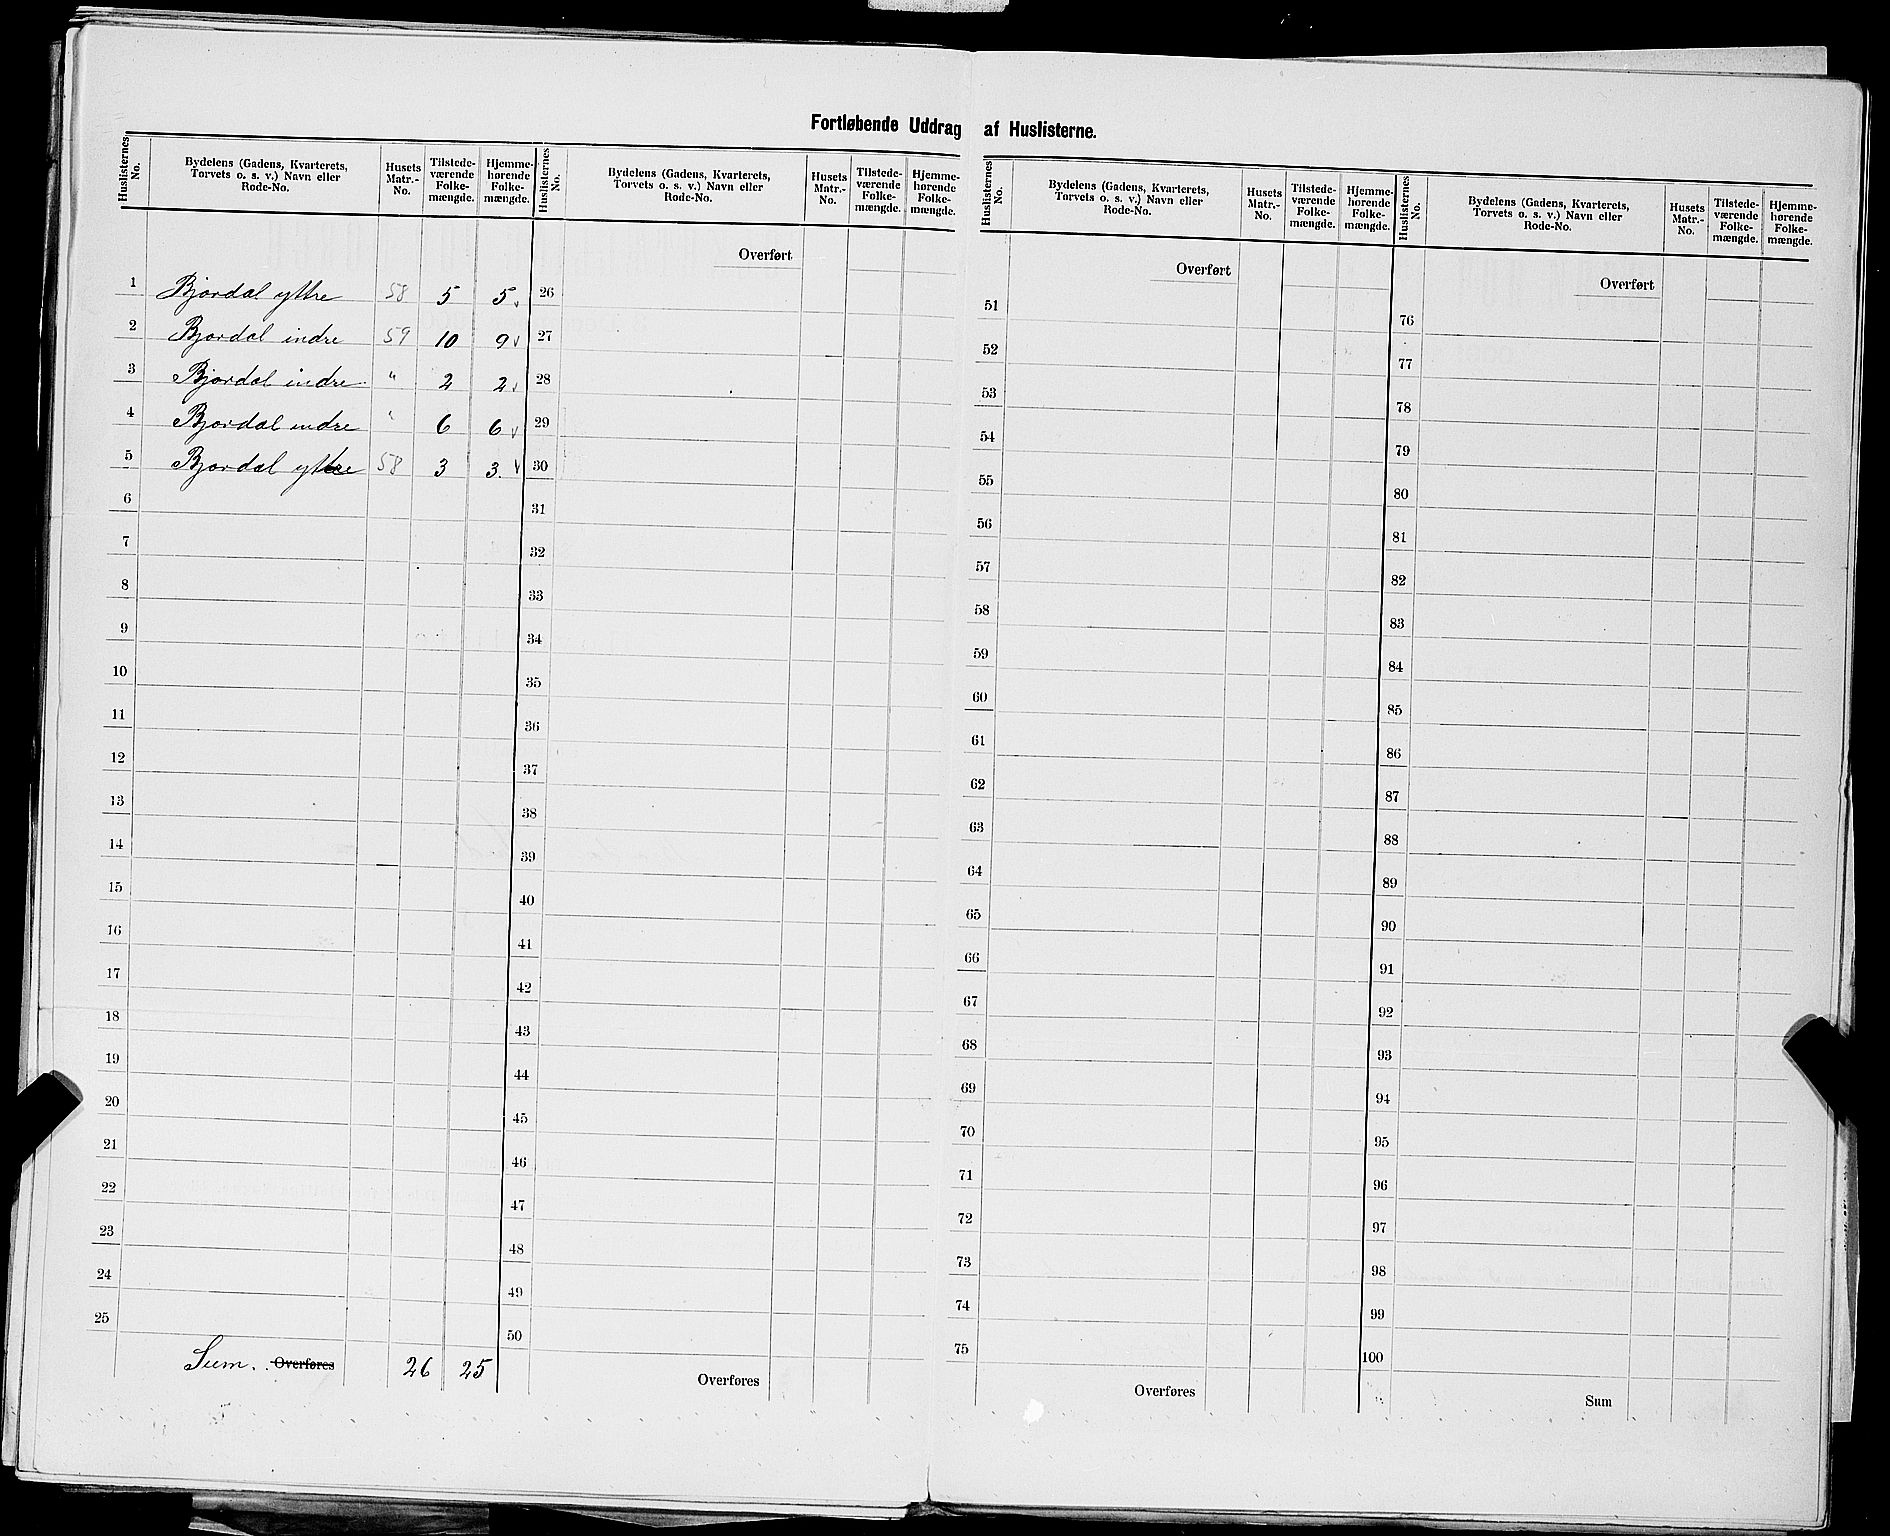 Fortløbende Uddrag af Huslisterne.
Huslisternes No. | Bydelens (Gadens, Kvarterets, Torvets o. s. v.) Navn eller Rode-No. | Husets Matr.-No. | Tilstedeværende Folkemængde. | Hjemmehørende Folkemængde.
1 Bjordal yttre 58 5 5 v
2 Bjordal indre 59 10 9 v
3 Bjordal indre " 2 2 v
4 Bjordal indre " 6 6 v
5 Bjordal yttre 58 3 3. v
6
7
8
9
10
11
12
13
14
15
16
17
18
19
20
21
22
23
24
25
Sum. Overføres 26 25
Huslisternes No. | Bydelens (Gadens, Kvarterets, Torvets o. s. v.) Navn eller Rode-No. | Husets Matr.-No. | Tilstedeværende Folkemængde. | Hjemmehørende Folkemængde.
Overført
26
27
28
29
30
31
32
33
34
35
36
37
38
39
40
41
42
43
44
45
46
47
48
49
50
Overføres
Huslisternes No. | Bydelens (Gadens, Kvarterets, Torvets o. s. v.) Navn eller Rode-No. | Husets Matr.-No. | Tilstedeværende Folkemængde. | Hjemmehørende Folkemængde.
Overført
51
52
53
54
55
56
57
58
59
60
61
62
63
64
65
66
67
68
69
70
71
72
73
74
75
Overføres
Huslisternes No. | Bydelens (Gadens, Kvarterets, Torvets o. s. v.) Navn eller Rode-No. | Husets Matr.-No. | Tilstedeværende Folkemængde. | Hjemmehørende Folkemængde.
Overført
76
77
78
79
80
81
82
83
84
85
86
87
88
89
90
91
92
93
94
95
96
97
98
99
100
Sum